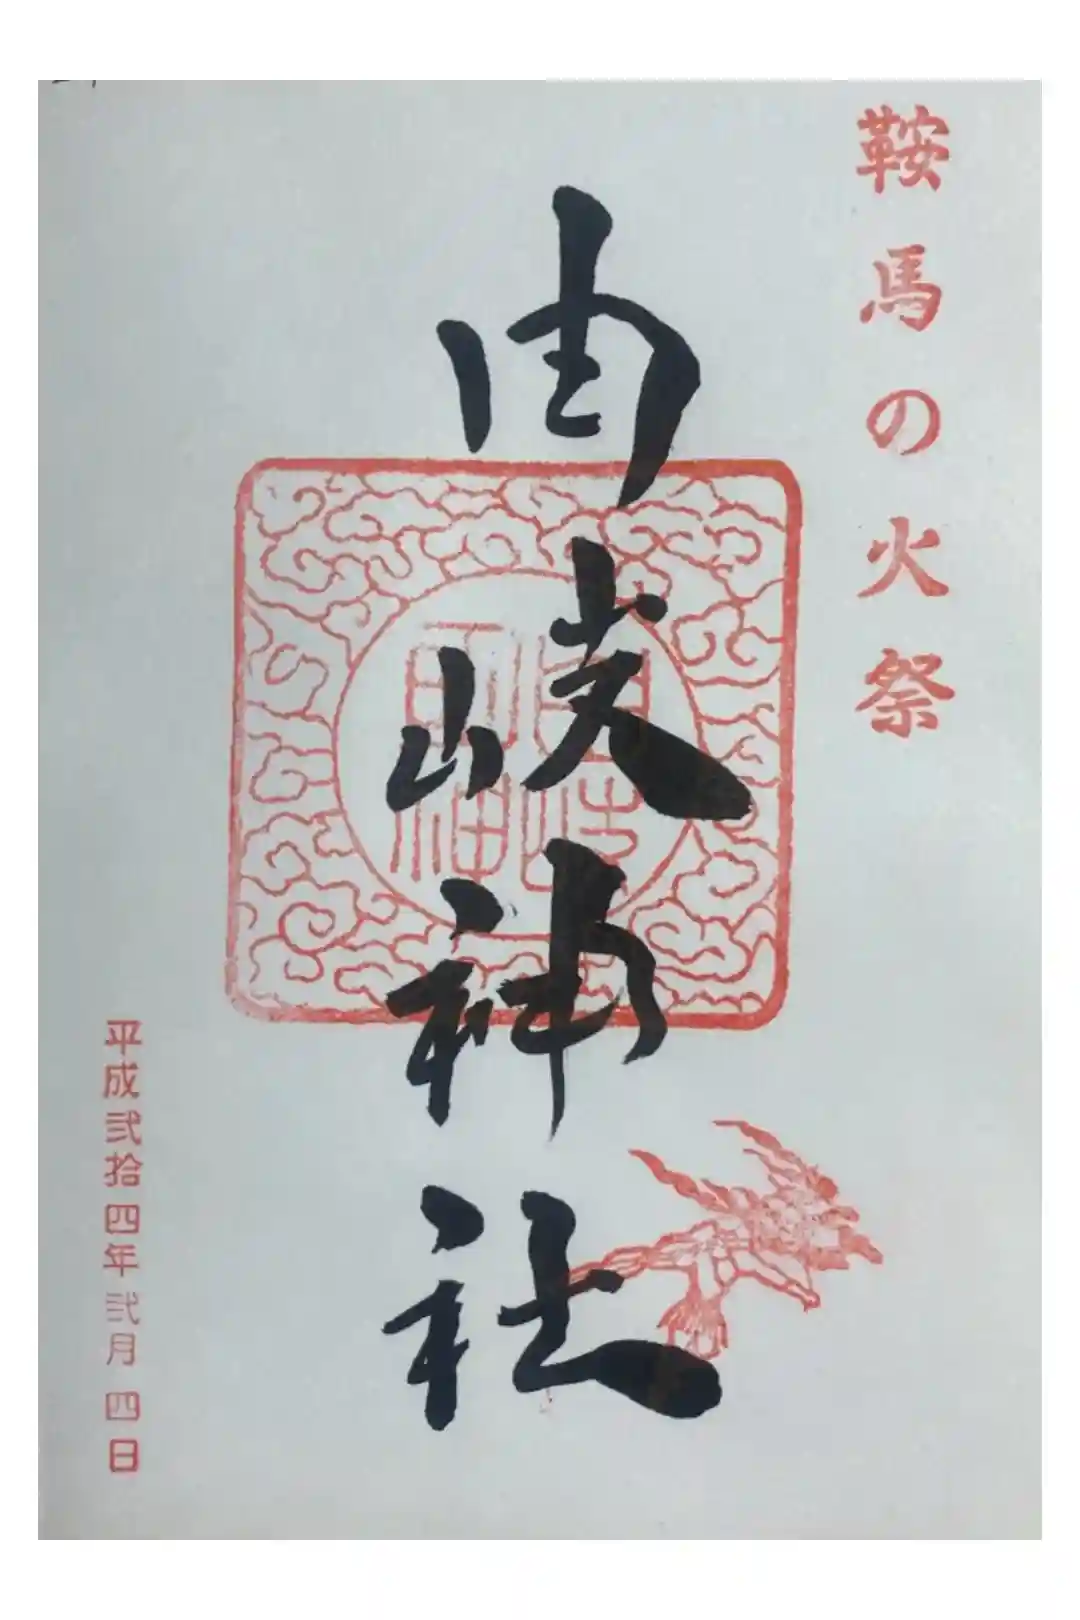 鞍馬の火祭
由岐神社
平成弐拾四年弐月四日